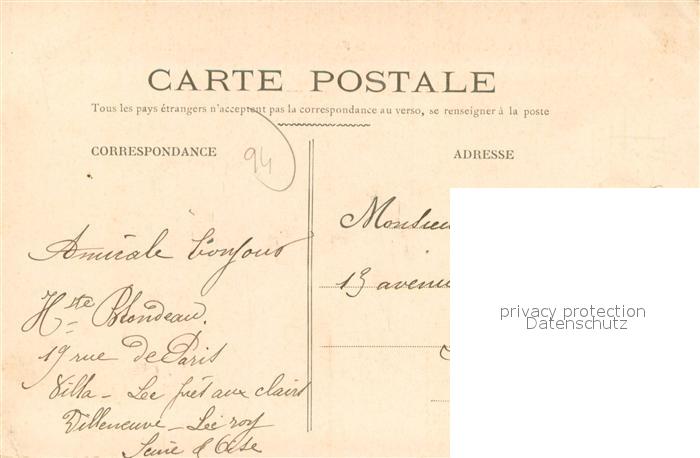 CARTE POSTALE
Tous les pays étrangers n'acceptent pas la correspondance au verso, se renseigner à la poste
CORRESPONDANCE
94
ADRESSE
Amicale bonjour
Hte Blondeau.
19 rue de Paris
Villa - Lee prés aux clairs
Villeneuve - Le roy
Seine & Oise
Monsieu
13 avenu
privacy protection
Datenschutz